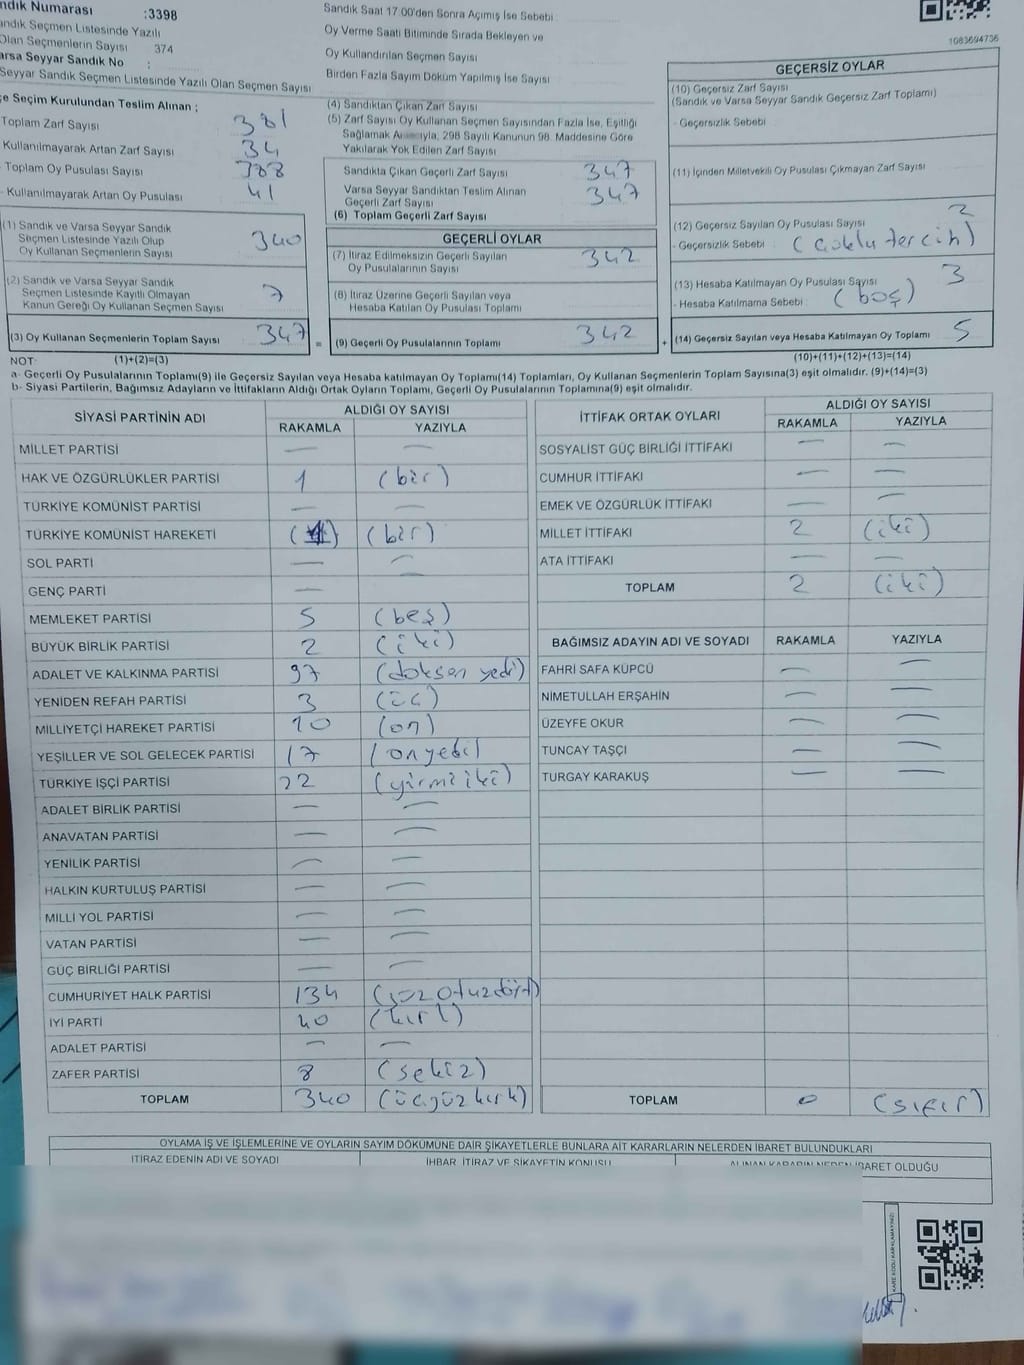 ndık Numarası :3398
andık Seçmen Listesinde Yazılı
Olan Seçmenlerin Sayısı 374
arsa Seyyar Sandık No :
Seyyar Sandık Seçmen Listesinde Yazılı Olan Seçmen Sayısı
e Seçim Kurulundan Teslim Alınan ;
Toplam Zarf Sayısı 381
Kullanılmayarak Artan Zarf Sayısı 34
Toplam Oy Pusulası Sayısı 388
- Kullanılmayarak Artan Oy Pusulası 41
(1) Sandık ve Varsa Seyyar Sandık
Seçmen Listesinde Yazılı Olup
Oy Kullanan Seçmenlerin Sayısı 340
(2) Sandık ve Varsa Seyyar Sandık
Seçmen Listesinde Kayıtlı Olmayan
Kanun Gereği Oy Kullanan Seçmen Sayısı 7
(3) Oy Kullanan Seçmenlerin Toplam Sayısı 347
Sandık Saat 17.00'den Sonra Açımış İse Sebebi
Oy Verme Saati Bitiminde Sırada Bekleyen ve
Oy Kullandırılan Seçmen Sayısı
Birden Fazla Sayım Döküm Yapılmış İse Sayısı
(4) Sandıktan Çıkan Zarf Sayısı
(5) Zarf Sayısı Oy Kullanan Seçmen Sayısından Fazla İse, Eşitliği
Sağlamak Amacıyla, 298 Sayılı Kanunun 98. Maddesine Göre
Yakılarak Yok Edilen Zarf Sayısı
Sandıkta Çıkan Geçerli Zarf Sayısı 347
Varsa Seyyar Sandıktan Teslim Alınan
Geçerli Zarf Sayısı 347
(6) Toplam Geçerli Zarf Sayısı
GEÇERLİ OYLAR
(7) İtiraz Edilmeksizin Geçerli Sayılan
Oy Pusulalarının Sayısı 342
(8) İtiraz Üzerine Geçerli Sayılan veya
Hesaba Katılan Oy Pusulası Toplamı
= (9) Geçerli Oy Pusulalarının Toplamı 342 +
1083694736
GEÇERSİZ OYLAR
(10) Geçersiz Zarf Sayısı
(Sandık ve Varsa Seyyar Sandık Geçersiz Zarf Toplamı)
- Geçersizlik Sebebi
(11) İçinden Milletvekili Oy Pusulası Çıkmayan Zarf Sayısı
(12) Geçersiz Sayılan Oy Pusulası Sayısı 2
- Geçersizlik Sebebi : (çoklu tercih)
(13) Hesaba Katılmayan Oy Pusulası Sayısı 3
- Hesaba Katılmama Sebebi : (boş)
(14) Geçersiz Sayılan veya Hesaba Katılmayan Oy Toplamı 5
NOT: (1)+(2)=(3) (10)+(11)+(12)+(13)=(14)
a- Geçerli Oy Pusulalarının Toplamı(9) ile Geçersiz Sayılan veya Hesaba katılmayan Oy Toplamı(14) Toplamları, Oy Kullanan Seçmenlerin Toplam Sayısına(3) eşit olmalıdır. (9)+(14)=(3)
b- Siyasi Partilerin, Bağımsız Adayların ve İttifakların Aldığı Ortak Oyların Toplamı, Geçerli Oy Pusulalarının Toplamına(9) eşit olmalıdır.
SİYASİ PARTİNİN ADI ALDIĞI OY SAYISI
RAKAMLA YAZIYLA
MİLLET PARTİSİ — —
HAK VE ÖZGÜRLÜKLER PARTİSİ 1 (bir)
TÜRKİYE KOMÜNİST PARTİSİ — —
TÜRKİYE KOMÜNİST HAREKETİ (1) (bir)
SOL PARTİ — —
GENÇ PARTİ — —
MEMLEKET PARTİSİ 5 (beş)
BÜYÜK BİRLİK PARTİSİ 2 (iki)
ADALET VE KALKINMA PARTİSİ 97 (doksan yedi)
YENİDEN REFAH PARTİSİ 3 (üç)
MİLLİYETÇİ HAREKET PARTİSİ 10 (on)
YEŞİLLER VE SOL GELECEK PARTİSİ 17 (onyedi)
TÜRKİYE İŞÇİ PARTİSİ 22 (yirmi iki)
ADALET BİRLİK PARTİSİ — —
ANAVATAN PARTİSİ — —
YENİLİK PARTİSİ — —
HALKIN KURTULUŞ PARTİSİ — —
MİLLİ YOL PARTİSİ — —
VATAN PARTİSİ — —
GÜÇ BİRLİĞİ PARTİSİ — —
CUMHURİYET HALK PARTİSİ 134 (yüz otuzdört)
İYİ PARTİ 40 (kırk)
ADALET PARTİSİ — —
ZAFER PARTİSİ 8 (sekiz)
TOPLAM 340 (üçyüz kırk)
İTTİFAK ORTAK OYLARI ALDIĞI OY SAYISI
RAKAMLA YAZIYLA
SOSYALİST GÜÇ BİRLİĞİ İTTİFAKI — —
CUMHUR İTTİFAKI — —
EMEK VE ÖZGÜRLÜK İTTİFAKI — —
MİLLET İTTİFAKI 2 (iki)
ATA İTTİFAKI — —
TOPLAM 2 (iki)
BAĞIMSIZ ADAYIN ADI VE SOYADI RAKAMLA YAZIYLA
FAHRİ SAFA KÜPCÜ — —
NİMETULLAH ERŞAHİN — —
ÜZEYFE OKUR — —
TUNCAY TAŞÇI — —
TURGAY KARAKUŞ — —
TOPLAM 0 (sıfır)
OYLAMA İŞ VE İŞLEMLERİNE VE OYLARIN SAYIM DÖKÜMÜNE DAİR ŞİKAYETLERLE BUNLARA AİT KARARLARIN NELERDEN İBARET BULUNDUKLARI
İTİRAZ EDENİN ADI VE SOYADI İHBAR, İTİRAZ VE ŞİKAYETİN KONUSU ALINAN KARARIN NEDEN İBARET OLDUĞU
KARE KODU KARALAMAYINIZ!